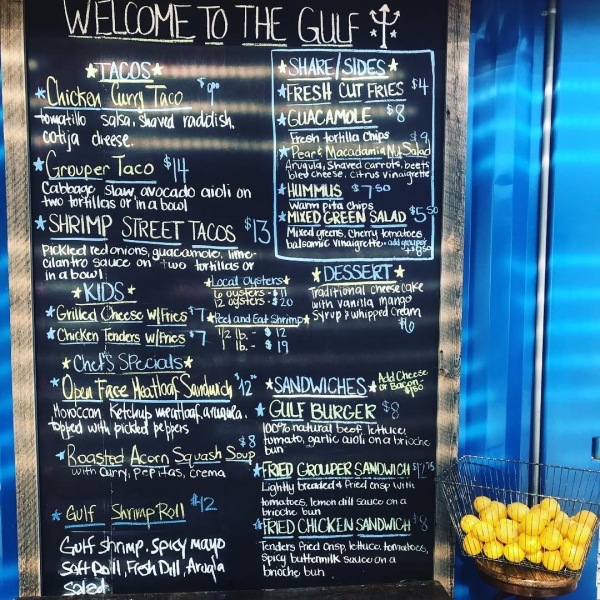 WELCOME TO THE GULF
TACOS
Chicken Curry Taco $9.00
tomatillo salsa, shaved raddish,
cotija cheese.
Grouper Taco $14
Cabbage slaw, avocado aioli on
two tortillas or in a bowl
SHRIMP STREET TACOS $13
Pickled red onions, guacamole, lime-
cilantro sauce on two tortillas or
in a bowl
KIDS
Grilled Cheese w/Fries $7
Chicken Tenders w/Fries $7
Local Oysters
6 oysters - $11
12 oysters - $20
Peel and Eat Shrimp
1/2 lb. - $12
1 lb. - $19
Chef's Specials
Open Face Meatloaf Sandwich $12
Moroccan Ketchup meatloaf, arugula,
topped with pickled peppers
$8
Roasted Acorn Squash Soup
with curry, pepitas, crema
Gulf Shrimp Roll $12
Gulf shrimp, spicy mayo
Soft Roll, Fresh Dill, Arugla
Salad
SHARE/SIDES
FRESH CUT FRIES $4
GUACAMOLE $8
Fresh tortilla chips
$9
Pear & Macadamia Nut Salad
Arugula, Shaved carrots, beets
bleu cheese, citrus vinaigrette
HUMMUS $7.50
warm pita chips
MIXED GREEN SALAD $5.50
Mixed greens, cherry tomatoes
balsamic vinaigrette - add grouper
DESSERT
Traditional cheesecake
with vanilla mango
Syrup & whipped cream
$6
SANDWICHES
Add Cheese
or Bacon
$1.50
GULF BURGER $8
100% natural beef, lettuce,
tomato, garlic aioli on a brioche
bun
FRIED GROUPER SANDWICH $12.75
Lightly breaded & fried crisp with
tomatoes, lemon dill sauce on a
brioche bun
FRIED CHICKEN SANDWICH $8
Tenders fried crisp, lettuce, tomatoes,
spicy buttermilk sauce on a
brioche bun